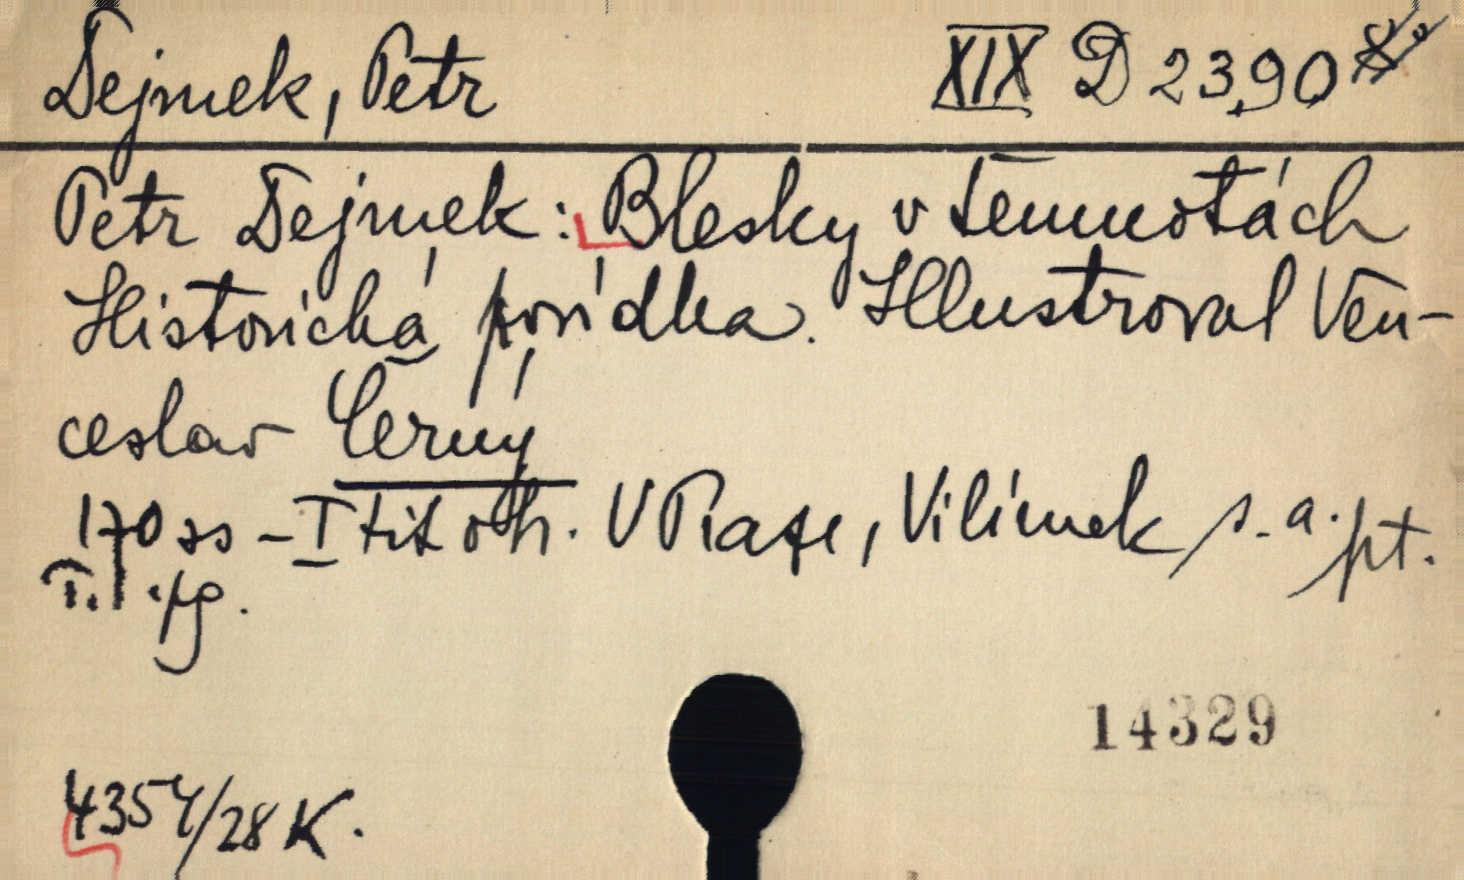 Dejmek, Petr XIX D 2390
Petr Dejmek: Blesky v temnotách
Historická povídka. Illustroval Ven-
ceslav Černý
170 ss - I tit oh. V Praze, Vilímek s. a. pt.
14329
4357/28 K.